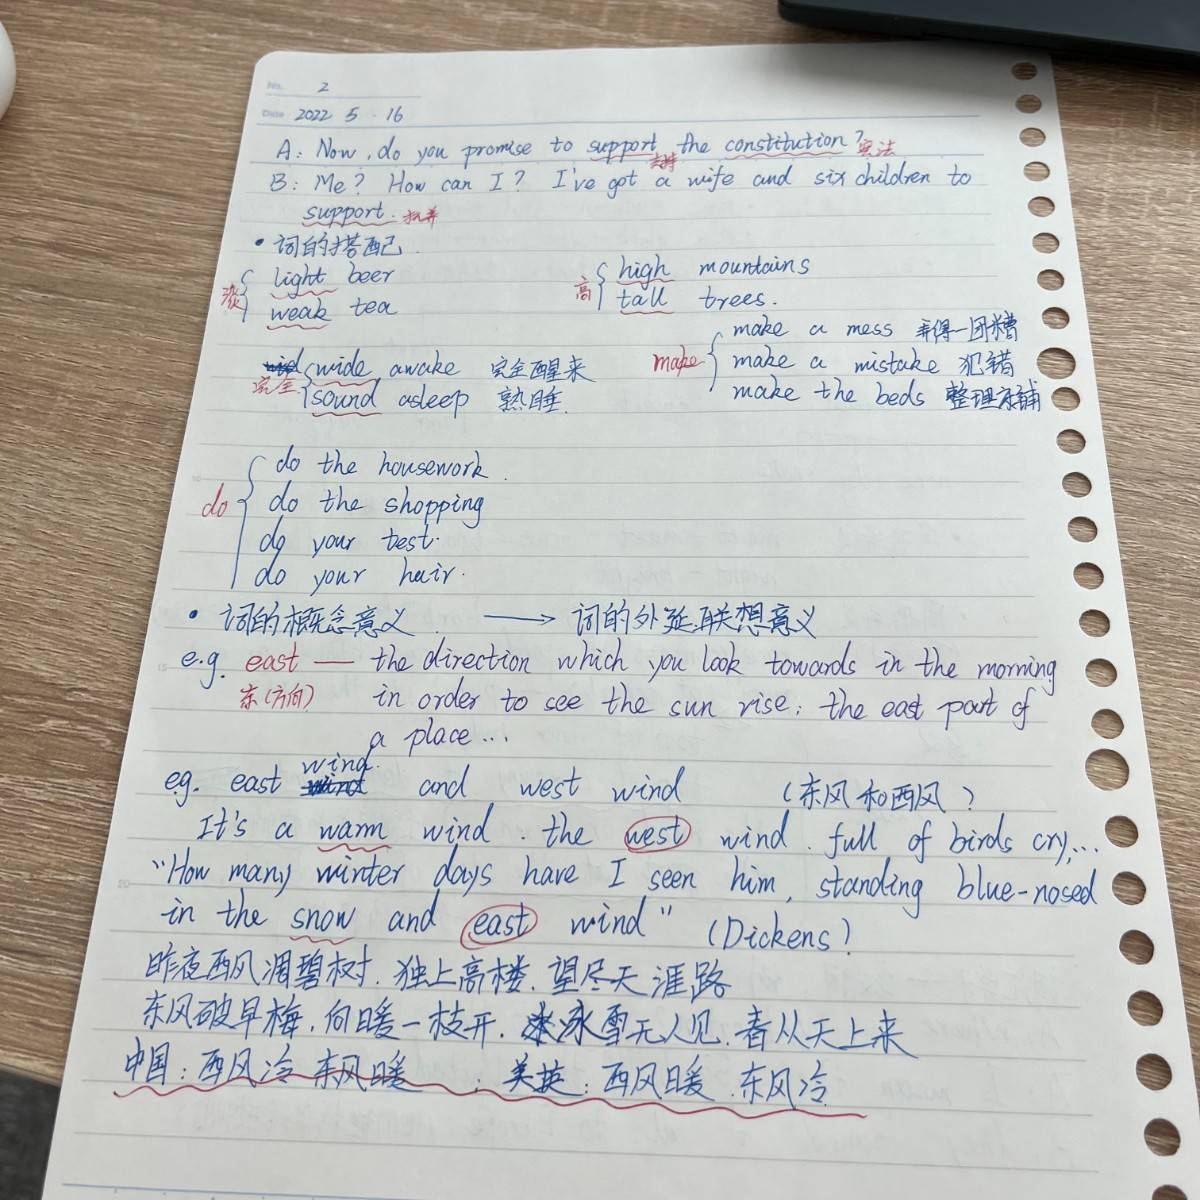 No. 2
Date 2022 5 · 16
A: Now, do you promise to support the constitution? 宪法
支持
B: Me? How can I? I've got a wife and six children to
support. 扶养
• 词的搭配
淡 { light beer
weak tea
高 { high mountains
tall trees.
完全 { wide awake 完全醒来
sound asleep 熟睡
make { make a mess 弄得一团糟
make a mistake 犯错
make the beds 整理床铺
do { do the housework.
do the shopping
do your test.
do your hair.
• 词的概念意义 → 词的外延.联想意义
e.g. east — the direction which you look towards in the morning
东(方向) in order to see the sun rise; the east part of
a place...
eg. east wind and west wind (东风和西风)
It's a warm wind. the west wind. full of birds cry,...
"How many winter days have I seen him, standing blue-nosed
in the snow and east wind" (Dickens)
昨夜西风凋碧树.独上高楼.望尽天涯路
东风破早梅.向暖一枝开.冰雪无人见.春从天上来
中国:西风冷 东风暖 ; 美英:西风暖.东风冷